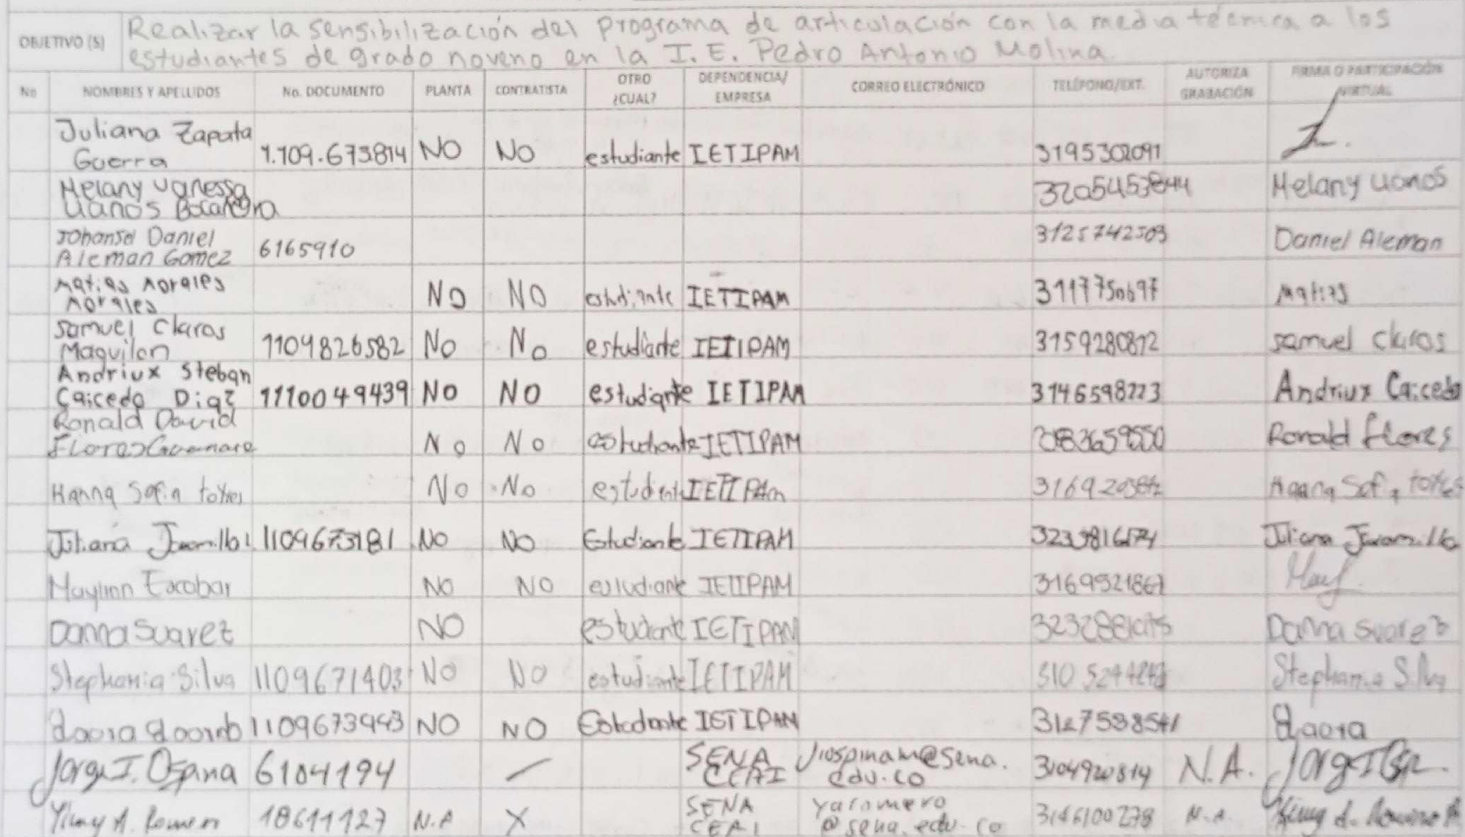 OBJETIVO (S) Realizar la sensibilización del programa de articulación con la media técnica a los
estudiantes de grado noveno en la I.E. Pedro Antonio Molina
No NOMBRES Y APELLIDOS No. DOCUMENTO PLANTA CONTRATISTA OTRO ¿CUAL? DEPENDENCIA/ EMPRESA CORREO ELECTRÓNICO TELÉFONO/EXT. AUTORIZA GRABACIÓN FIRMA O PARTICIPACIÓN VIRTUAL
Juliana Zapata
Guerra 1.109.673814 NO NO estudiante IETIPAM 3195302091
Melany Vanessa
Llanos 3205453844 Melany Llanos
Johansel Daniel
Aleman Gomez 6165910 3125742509 Daniel Aleman
Matias Morales
Morales NO NO estudiante IETIPAM Matias
Samuel Claros
Maquilon 1109826582 No No estudiante IETIPAM 3159280812 samuel claros
Andriux Steban
Caicedo Diaz 1110049439 NO NO estudiante IETIPAM 3146598223 Andriux Caicedo
Ronald David
Flores No No estudiante IETIPAM Ronald flores
Hanna Sofia torres No No estudiante IETIPAM Hanna Sofia torres
Juliana Jaramillo 1109673181 NO NO Estudiante IETIPAM Juliana Jaramillo
Maylinn Escobar NO NO estudiante IETIPAM 3169521867
Danna Suarez NO estudiante IETIPAM Danna Suarez
Stephania Silva 1109671403 NO NO estudiante IETIPAM Stephania Silva
1109673943 NO NO Estudiante IETIPAM 3127588541
Jorge I. Ospina 6104194 SENA jiospinam@sena.
edu.co 3104920819 N.A.
Yimy A. Romero 18611127 N.A X SENA yaromero
@sena.edu.co 3146100278 N.A. Yimy A. Romero